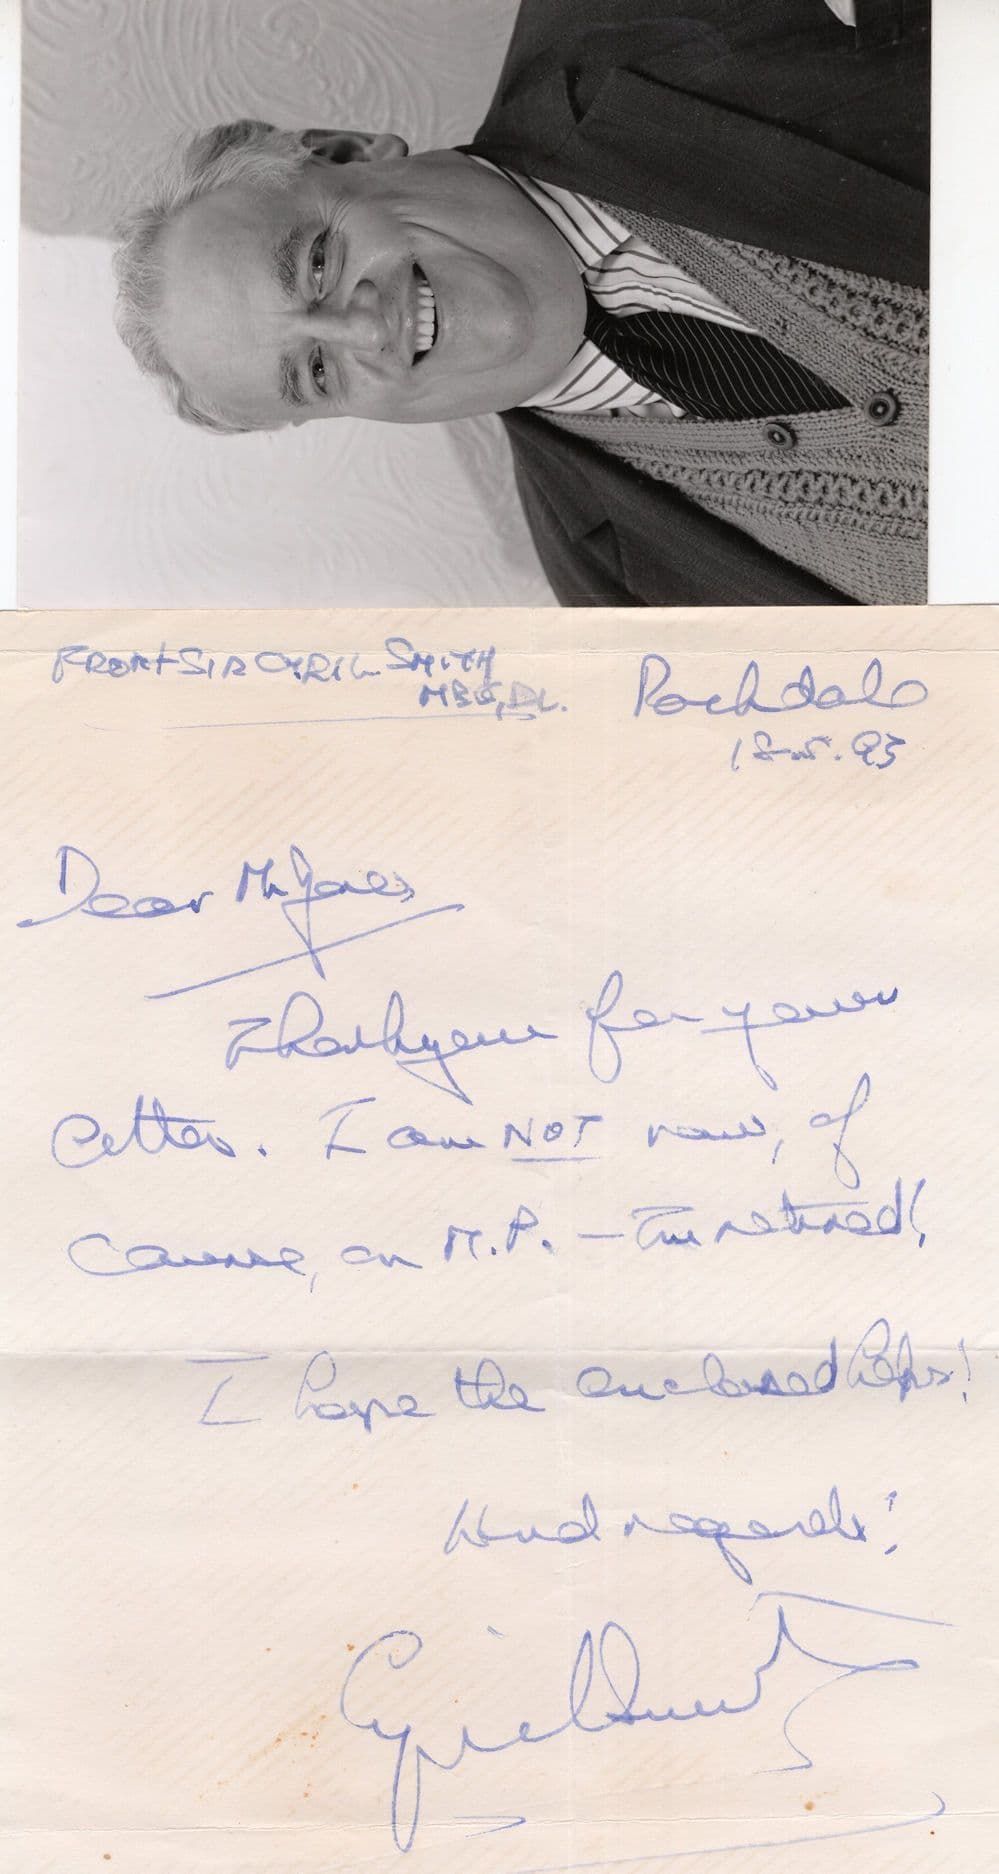 FROM SIR CYRIL SMITH
MBE, DL.
Rochdale
18.5.93
Dear Mr
Thankyou for your
letter. I am NOT now, of
course, an M.P. - I'm retired!
I hope the enclosed helps!
Kind regards!
Cyril Smith